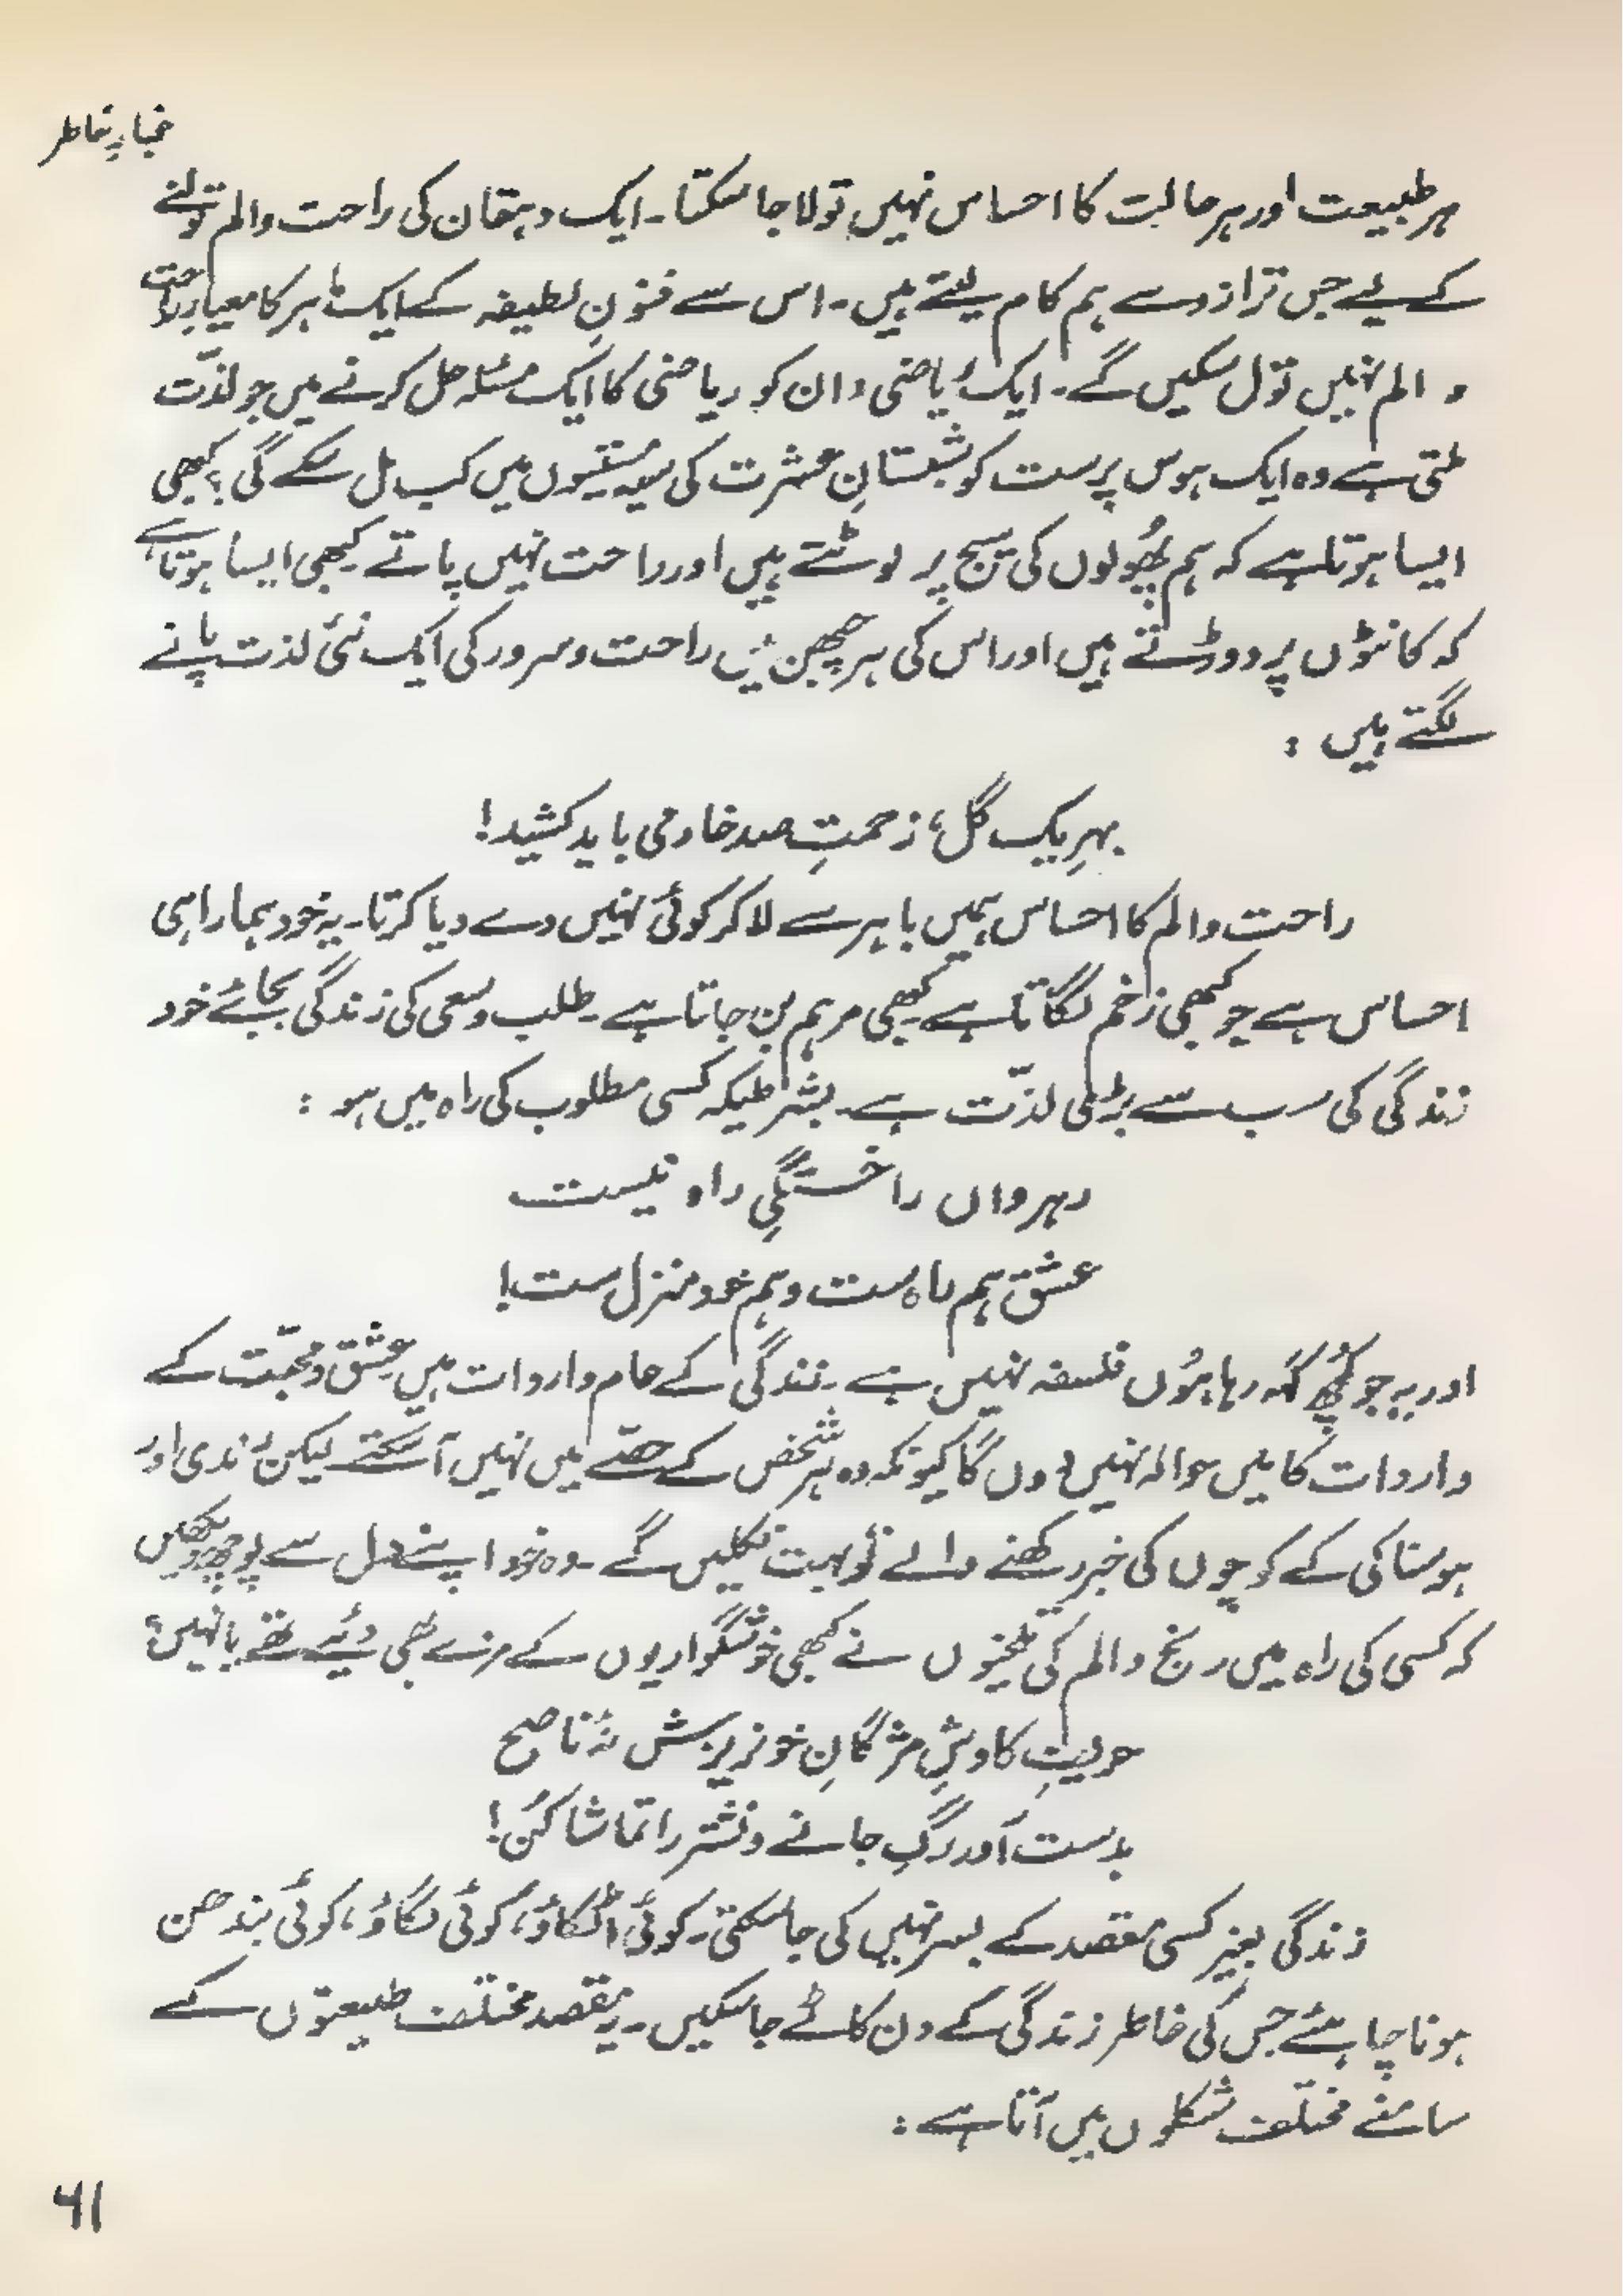 غبارِ خاطر
ہر طبیعت اور ہر حالت کا احساس نہیں تولا جا سکتا۔ ایک دہقان کی راحت و الم تولنے
کے لیے جس ترازو سے ہم کام لیتے ہیں۔ اس سے فنونِ لطیفہ کے ایک ماہر کا معیارِ راحت
و الم نہیں تول سکیں گے۔ ایک ریاضی دان کو ریاضی کا ایک مسئلہ حل کرنے میں جو لذّت
ملتی ہے وہ ایک ہوس پرست کو شبستانِ عشرت کی سیہ مستیوں میں کب مل سکے گی؟ کبھی
ایسا ہوتا ہے کہ ہم پھُولوں کی سیج پر لوٹتے ہیں اور راحت نہیں پاتے کبھی ایسا ہوتا ہے
کہ کانٹوں پر دوڑتے ہیں اور اس کی ہر چبھن میں راحت و سرور کی ایک نئی لذت پانے
لگتے ہیں :
بہرِ یک گل، زحمتِ صد خار می باید کشید!
راحت و الم کا احساس ہمیں باہر سے لا کر کوئی نہیں دے دیا کرتا۔ یہ خود ہمارا ہی
احساس ہے جو کبھی زخم لگاتا ہے کبھی مرہم بن جاتا ہے۔ طلب و سعی کی زندگی بجائے خود
زندگی کی سب سے بڑی لذّت ہے۔ بشرطیکہ کسی مطلوب کی راہ میں ہو :
رہرواں را خستگیِ راہ نیست
عشق ہم راہ ست و ہم خود منزل ست!
اور یہ جو کچھ کہہ رہا ہوُں فلسفہ نہیں ہے۔ زندگی کے عام واردات ہیں عشق و محبّت کے
واردات کا میں حوالہ نہیں دوں گا کیونکہ وہ ہر شخص کے حصّے میں نہیں آ سکتے لیکن رندی اور
ہوسناکی کے کوچوں کی خبر رکھنے والے تو بہت نکلیں گے۔ وہ خود اپنے دل سے پوچھ دیکھیں
کہ کسی کی راہ میں رنج و الم کی تلخیوں نے کبھی خوشگواریوں کے مزے بھی دیئے تھے یا نہیں؟
حریفِ کاوشِ مژگانِ خونریزش نۂ ناصح
بدست آور رگِ جانے و نشتر را تماشا کن!
زندگی بغیر کسی مقصد کے بسر نہیں کی جا سکتی۔ کوئی اٹکاؤ، کوئی لگاؤ، کوئی بندھن
ہونا چاہئے جس کی خاطر زندگی کے دن کاٹے جا سکیں۔ یہ مقصد مختلف طبیعتوں کے
سامنے مختلف شکلوں میں آتا ہے :
۶۱